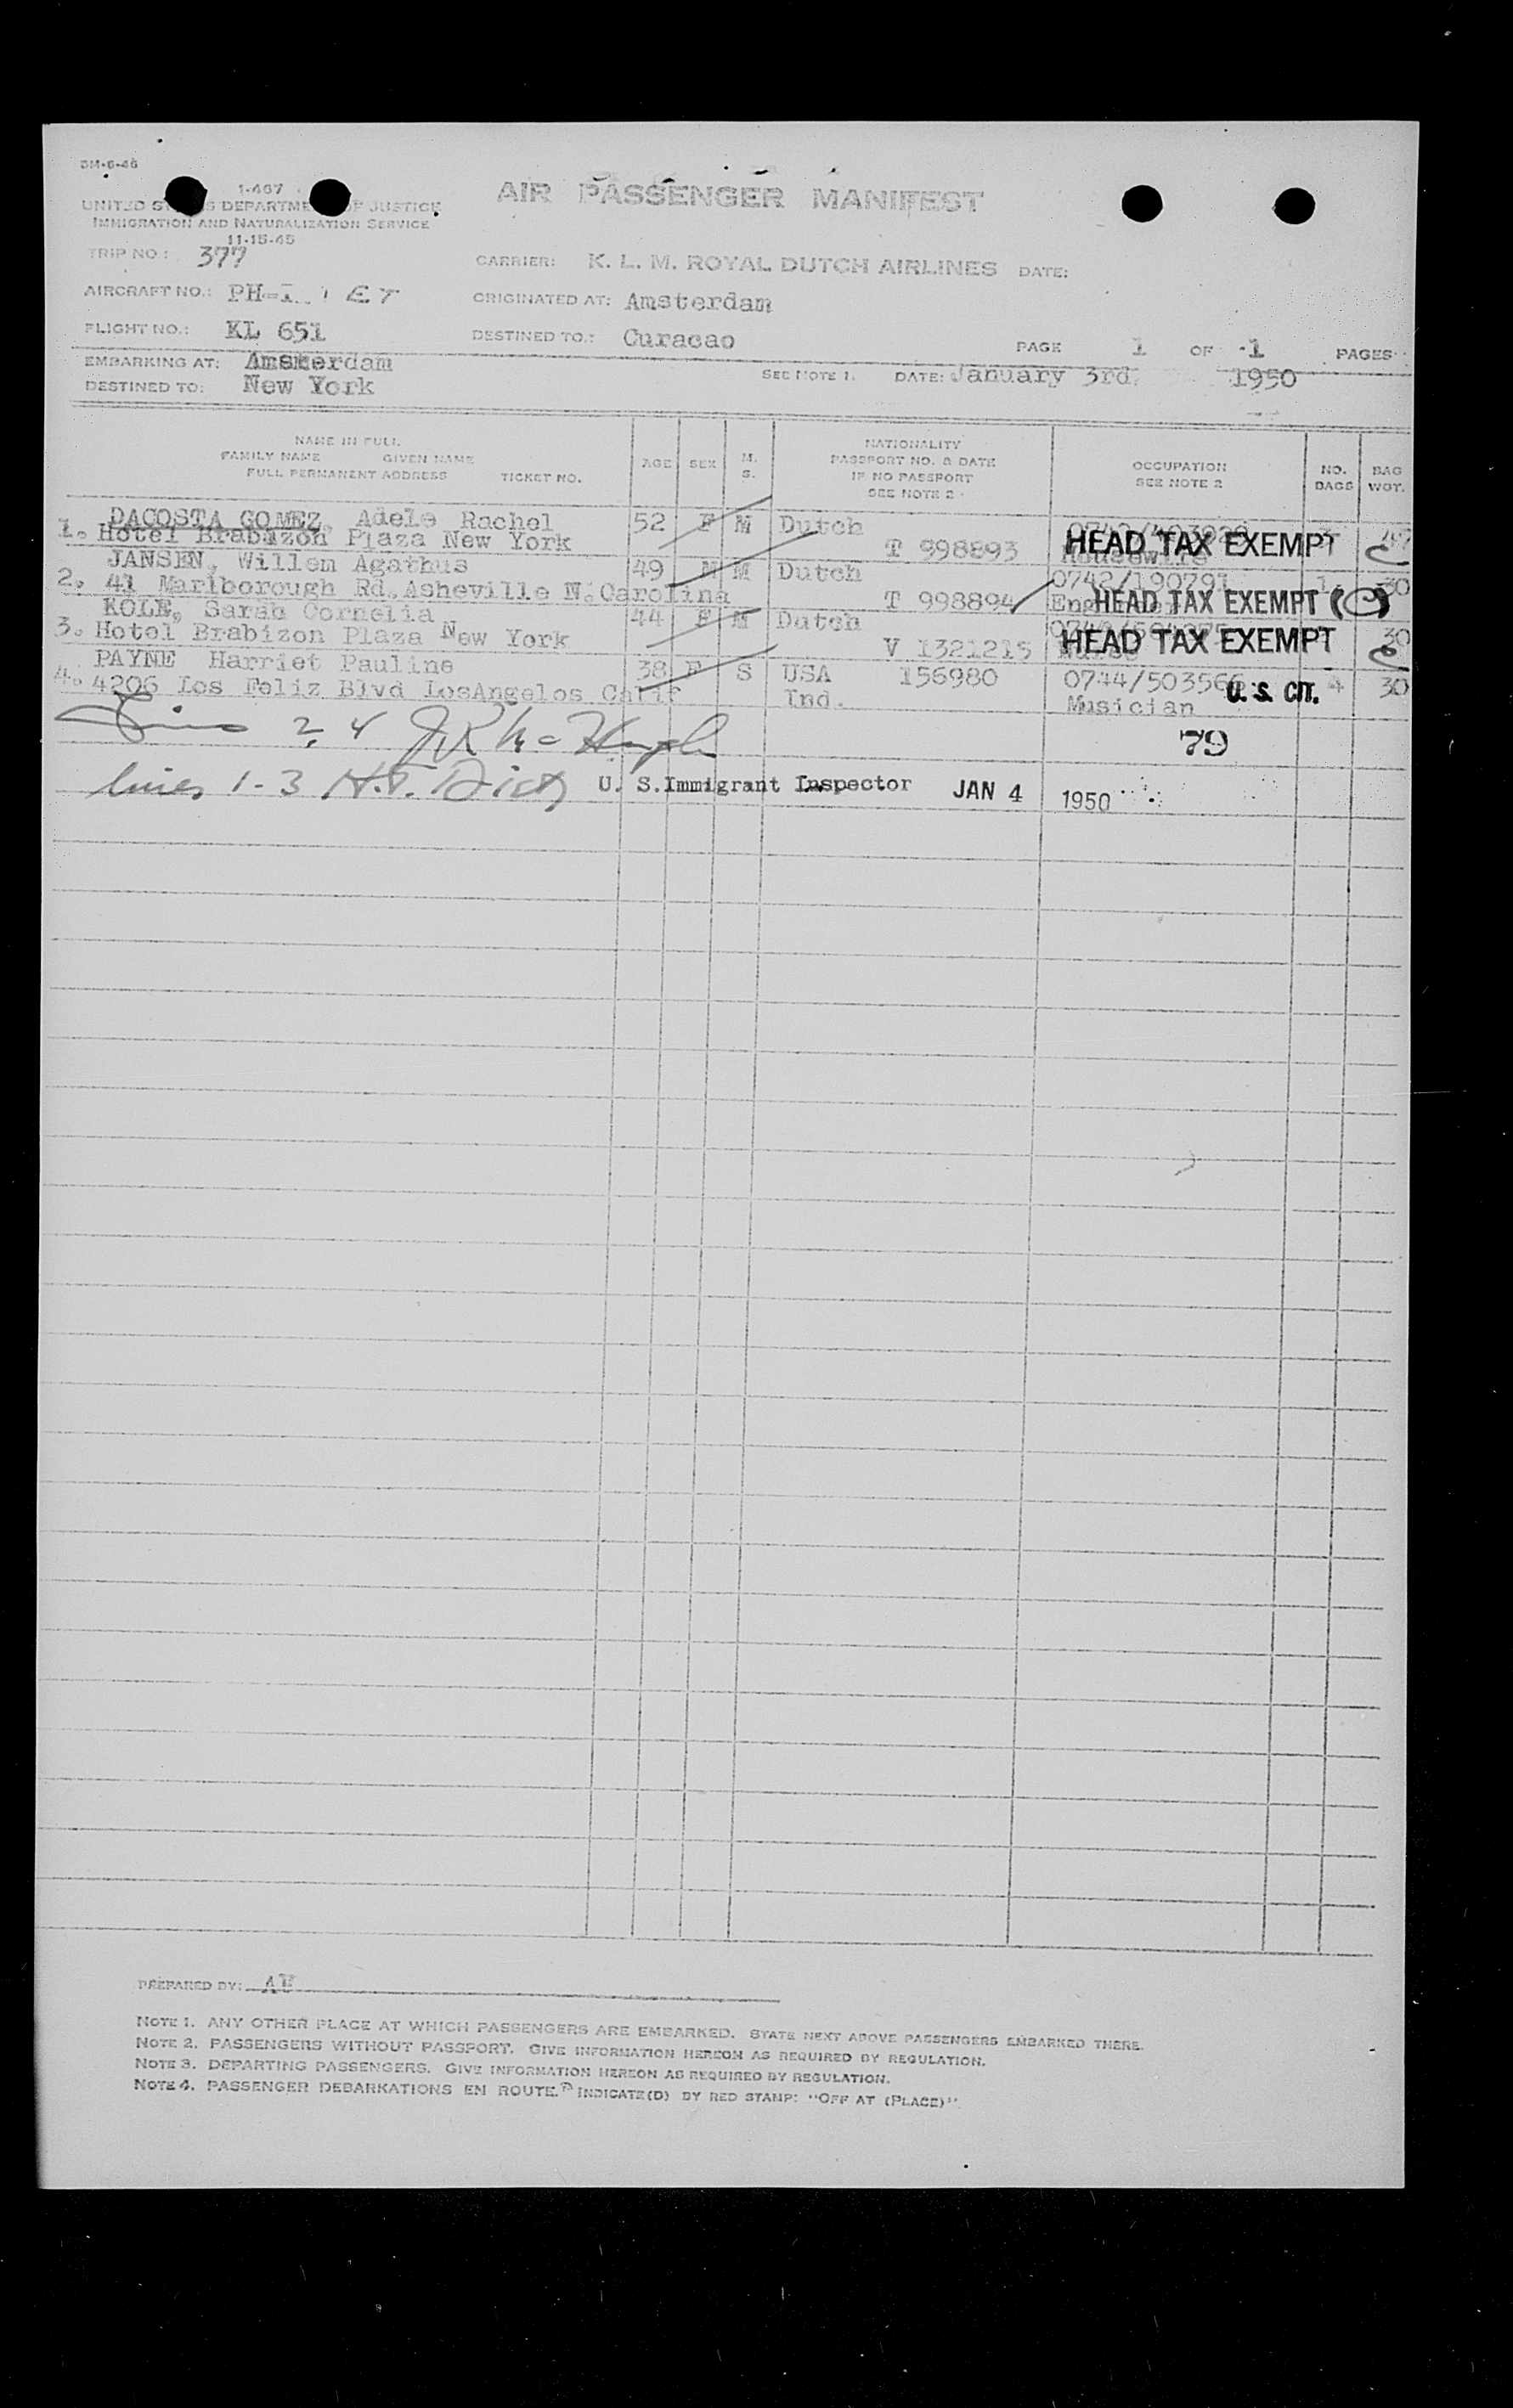 DM-6-46
I-467
UNITED STATES DEPARTMENT OF JUSTICE
IMMIGRATION AND NATURALIZATION SERVICE
11-15-45
AIR PASSENGER MANIFEST
TRIP NO: 377
CARRIER: K. L. M. ROYAL DUTCH AIRLINES DATE:
AIRCRAFT NO.: PH-
ORIGINATED AT: Amsterdam
FLIGHT NO.: KL 651
DESTINED TO.: Curacao
PAGE 1 OF 1 PAGES
EMBARKING AT: Amsterdam
SEE NOTE 1. DATE: January 3rd. 1950
DESTINED TO: New York
NAME IN FULL
FAMILY NAME GIVEN NAME
FULL PERMANENT ADDRESS TICKET NO.
AGE SEX M. S.
NATIONALITY
PASSPORT NO. & DATE
IF NO PASSPORT
SEE NOTE 2
OCCUPATION
SEE NOTE 2
NO. BAGS
BAG WGT.
DACOSTA GOMEZ, Adele Rachel 52 F M Dutch
1. Hotel Brabizon Plaza New York T 998893 Housewife HEAD TAX EXEMPT
JANSEN, Willem Agathus 49 M M Dutch 0742/190791 1 30
2. 41 Marlborough Rd. Asheville N. Carolina T 998894 HEAD TAX EXEMPT
KOLE, Sarah Cornelia 44 F M Dutch
3. Hotel Brabizon Plaza New York V 1321215 HEAD TAX EXEMPT 30
PAYNE Harriet Pauline 38 F S USA 156980 0744/503566 U. S. CIT. 4 30
4. 4206 Los Feliz Blvd LosAngelos Calif Ind. Musician
Lines 2, 4
79
lines 1-3 U. S. Immigrant Inspector JAN 4 1950
PREPARED BY:
NOTE 1. ANY OTHER PLACE AT WHICH PASSENGERS ARE EMBARKED. STATE NEXT ABOVE PASSENGERS EMBARKED THERE.
NOTE 2. PASSENGERS WITHOUT PASSPORT. GIVE INFORMATION HEREON AS REQUIRED BY REGULATION.
NOTE 3. DEPARTING PASSENGERS. GIVE INFORMATION HEREON AS REQUIRED BY REGULATION.
NOTE 4. PASSENGER DEBARKATIONS EN ROUTE. INDICATE(D) BY RED STAMP: "OFF AT (PLACE)".